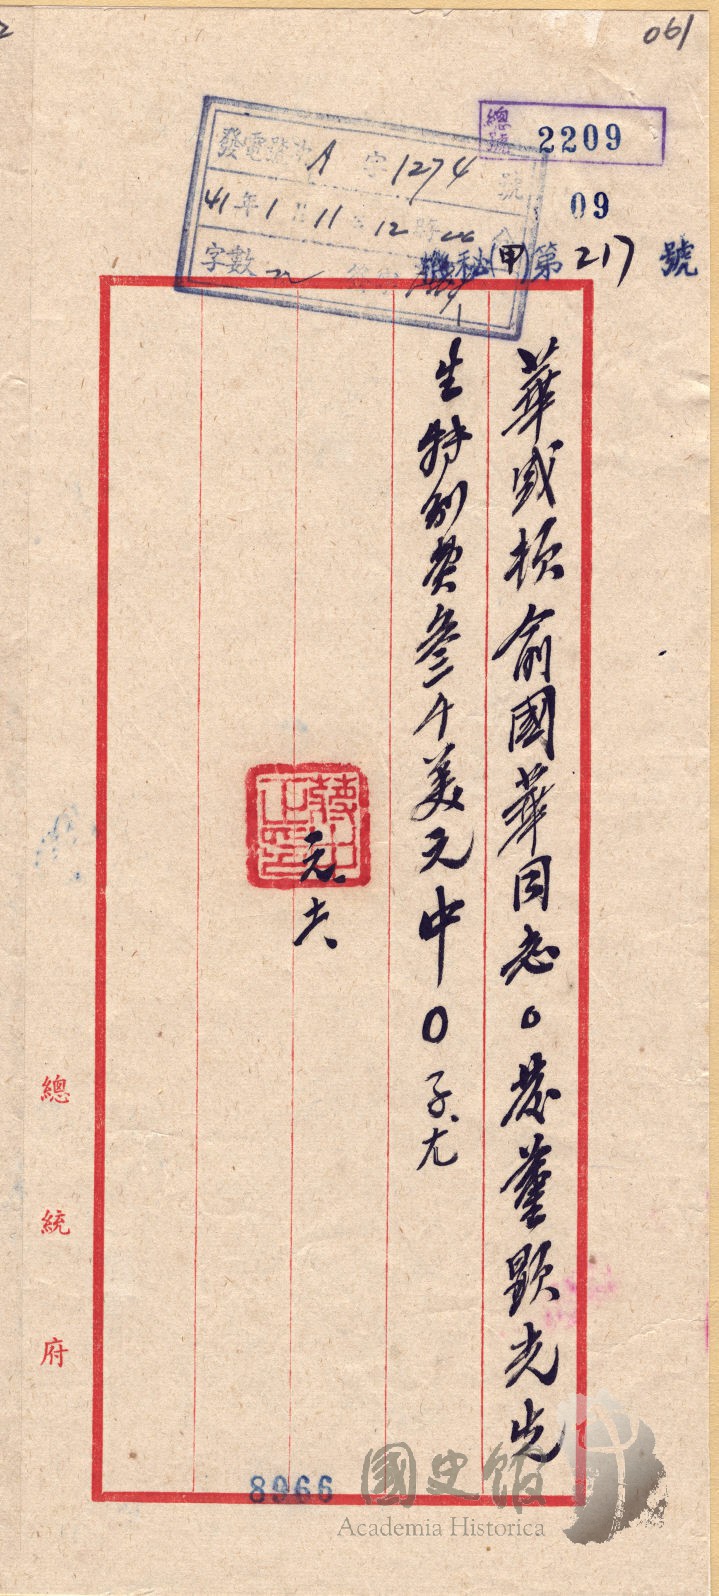 061
總號 2209
09
發電號次 A 字 1274 號
41年1月11日12時
字數
機秘(甲)第217號
華盛頓俞國華同志。發董顯光先
生特別費叁千美元中○子尤
元、十六
總統府
8966
國史館
Academia Historica